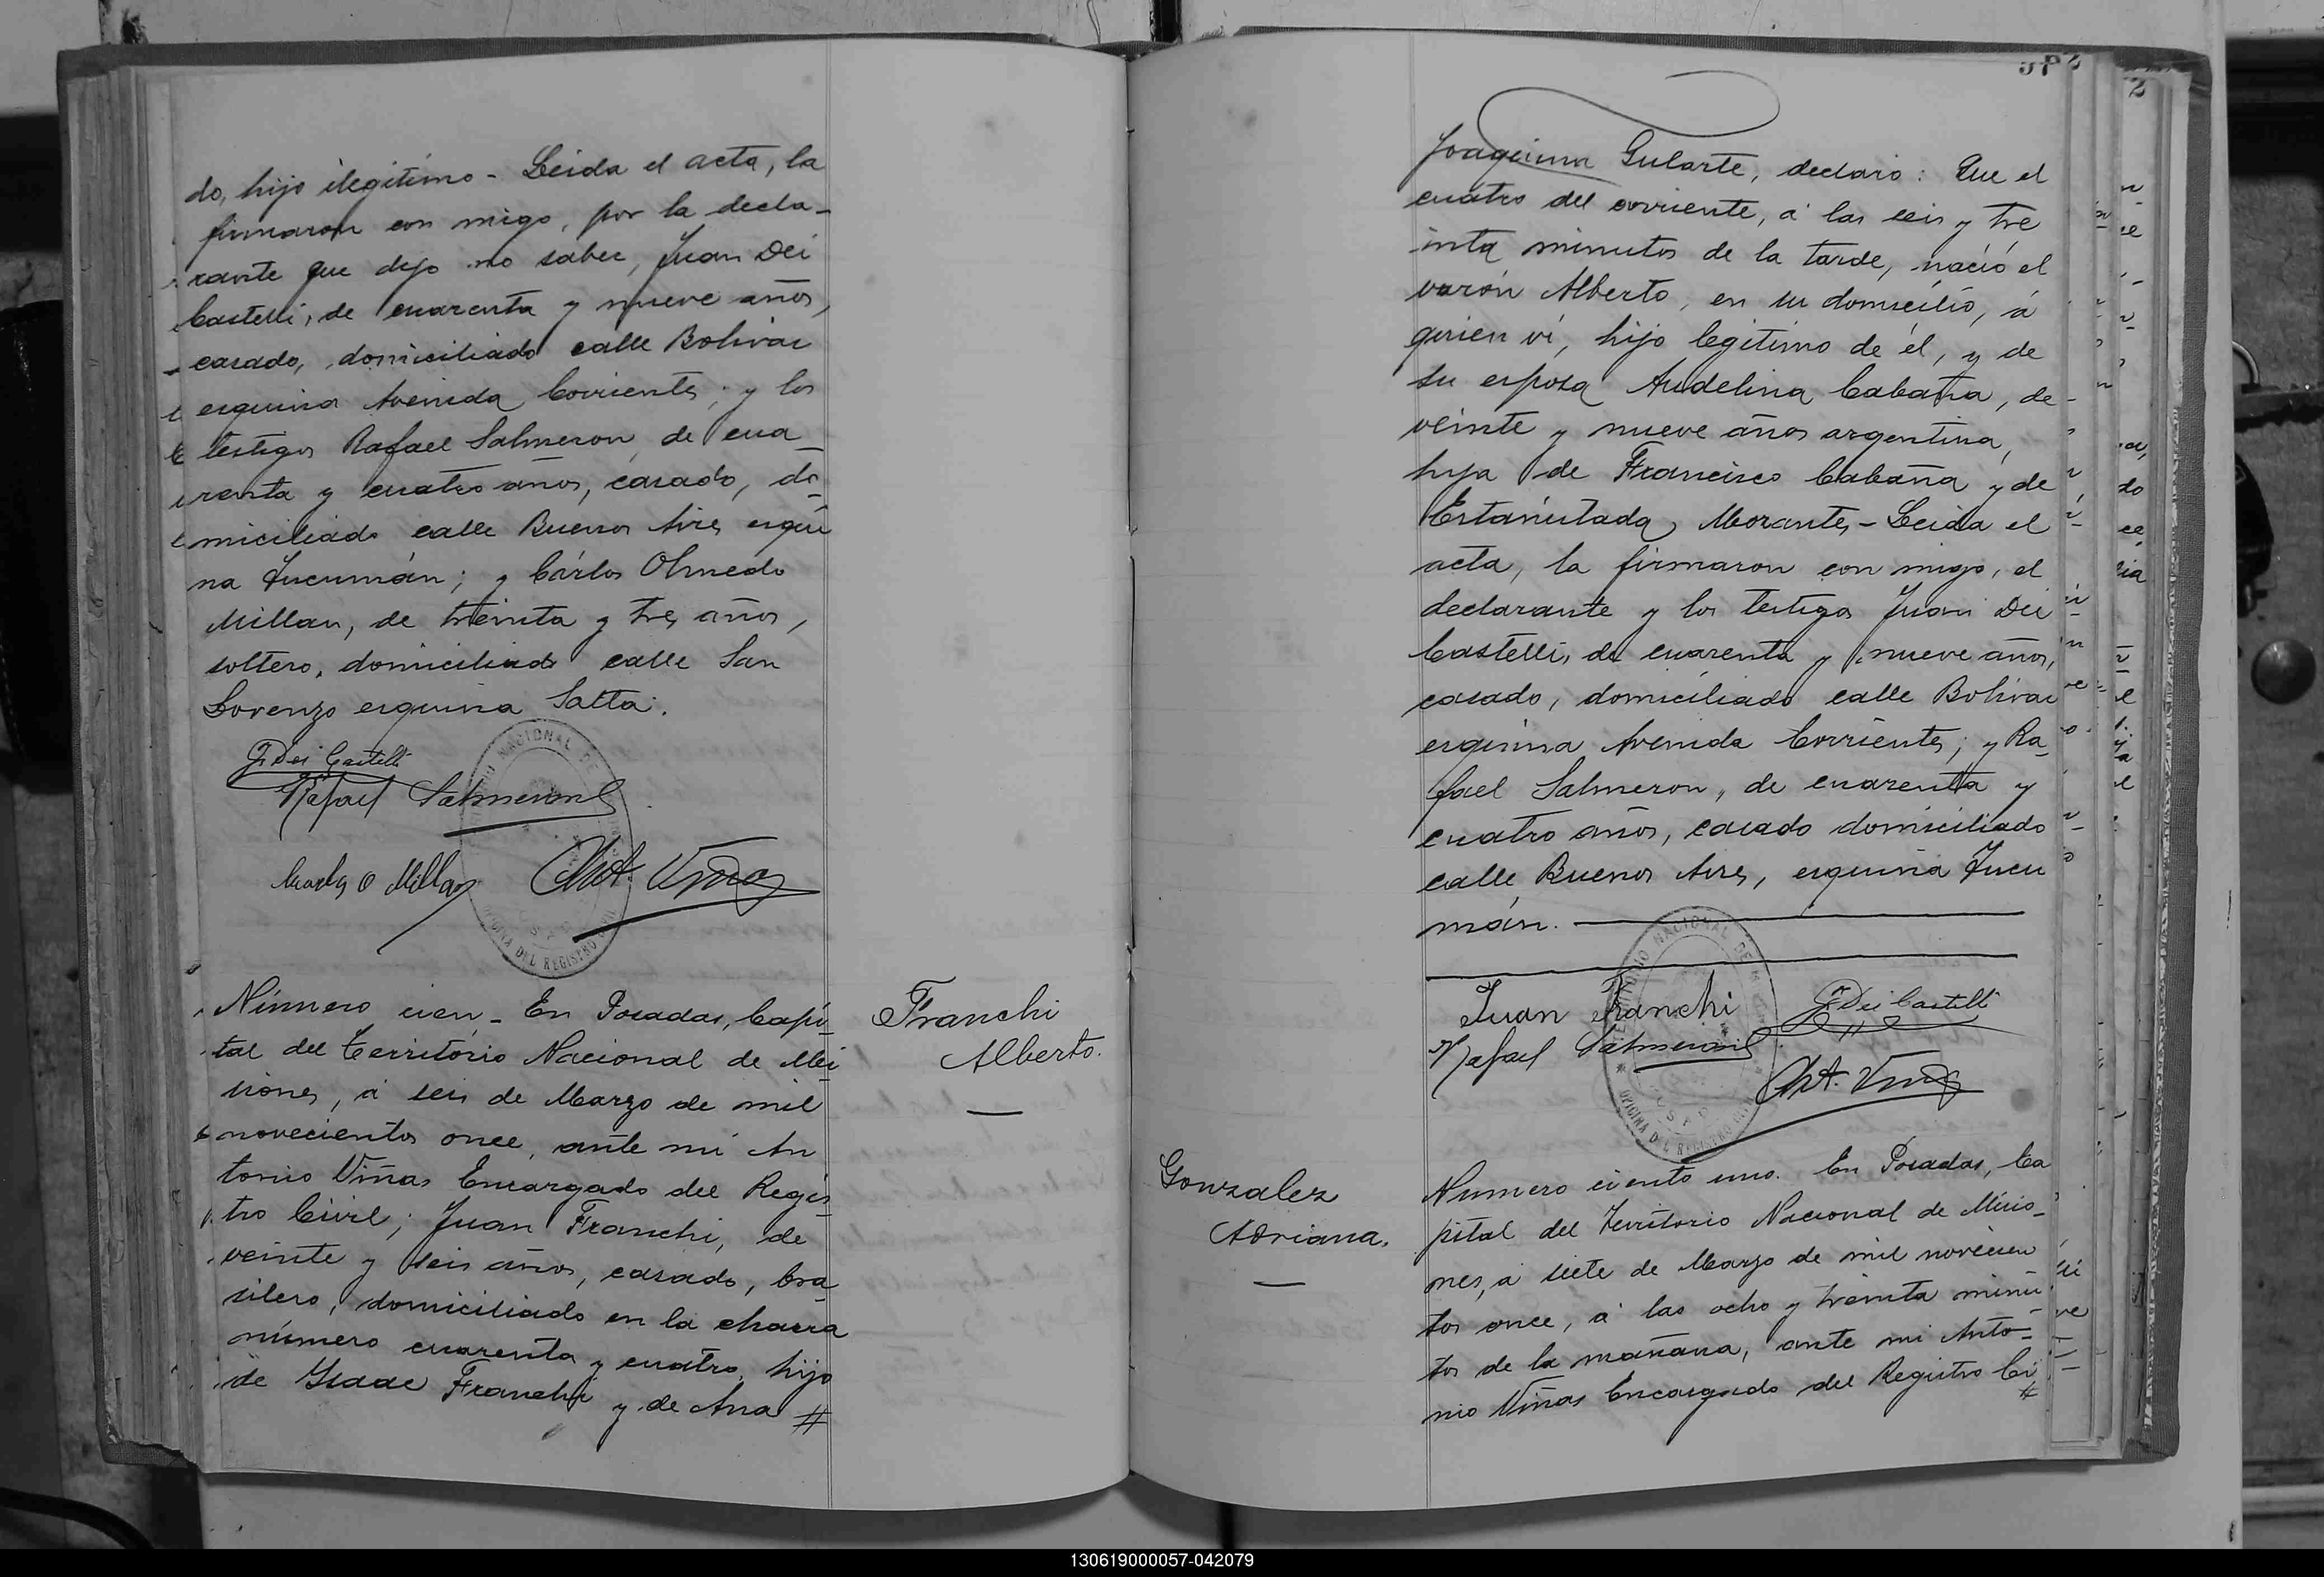 do, hijo ilegitimo - Leida el acta, la
firmaron con migo, por la decla-
rante que dijo no saber, Juan Dei
Castelli, de cuarenta y nueve años,
casado, domiciliado calle Bolivar
esquina Avenida Corrientes; y los
testigos Rafael Salmeron, de cua
renta y cuatro años, casado, do-
miciliado calle Buenos Aires esqui
na Tucumán; y Cárlos Olmedo
Millan, de treinta y tres años,
soltero, domiciliado calle San
Lorenzo esquina Salta.
J. Dei Castelli
Rafael Salmeron
Carlos O Millan Ant. Viñas
TERRITORIO NACIONAL DE
OFICINA DEL REGISTRO CIVIL
Número cien - En Posadas, Capi-
tal del Territorio Nacional de Mi-
siones, á seis de Marzo de mil
novecientos once, ante mi An
tonio Viñas Encargado del Regis-
tro Civil; Juan Franchi, de
veinte y seis años, casado, bra-
silero, domiciliado en la chacra
número cuarenta y cuatro, hijo
de Isaac Franchi y de Ana #
Franchi
Alberto.
Joaquina Gularte, declaró: Que el
cuatro del corriente, á las seis y tre
inta minutos de la tarde, nació el
varón Alberto, en su domicilio, á
quien ví, hijo legitimo de él, y de
su esposa Audelina Cabaña, de
veinte y nueve años argentina,
hija de Francisco Cabaña y de
Morante, - Leida el
acta, la firmaron con migo, el
declarante y los testigos Juan Dei
Castelli, de cuarenta y nueve años,
casado, domiciliado calle Bolivar
esquina Avenida Corrientes; y Ra-
fael Salmeron, de cuarenta y
cuatro años, casado domiciliado
calle Buenos Aires, esquina Tucu
mán.
Juan Franchi J. Dei Castelli
Rafael Salmeron
Ant. Viñas
TERRITORIO NACIONAL DE
OFICINA DEL REGISTRO
Gonzalez
Adriana.
Numero ciento uno. En Posadas, Ca
pital del Territorio Nacional de Misio-
nes, á siete de Marzo de mil novecien
tos once, á las ocho y treinta minu-
tos de la mañana, ante mi Anto-
nio Viñas Encargado del Registro Ci
#
130619000057-042079